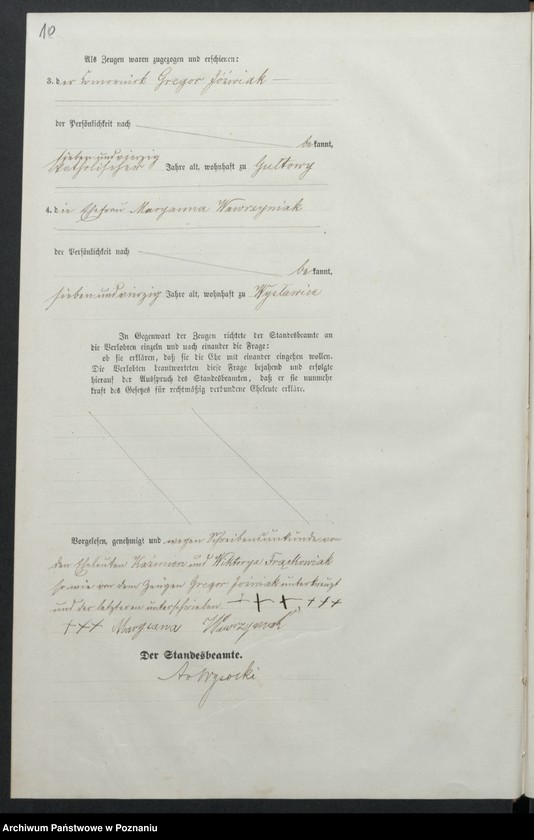 10
Als Zeugen waren zugezogen und erschienen:
3. der Komornik Gregor Jóźwiak
der Persönlichkeit nach
bekannt,
siebenundvierzig
Jahre alt, wohnhaft zu Gultowy
4. die Ehefrau Maryanna Wawrzyniak
der Persönlichkeit nach
bekannt,
siebenundvierzig Jahre alt, wohnhaft zu Wysławice
In Gegenwart der Zeugen richtete der Standesbeamte an
die Verlobten einzeln und nach einander die Frage:
ob sie erklären, daß sie die Ehe mit einander eingehen wollen.
Die Verlobten beantworteten diese Frage bejahend und erfolgte
hierauf der Ausspruch des Standesbeamten, daß er sie nunmehr
kraft des Gesetzes für rechtmäßig verbundene Eheleute erkläre.
Vorgelesen, genehmigt und wegen Schreibensunkunde von
den Eheleuten Kazimir und Wiktorya Frąckowiak
sowie von dem Zeugen Gregor Jóźwiak unterkreuzt
und der letzteren unterschrieben +++, +++
+++ Maryana Wawrzyniak
Der Standesbeamte.
Archiwum Państwowe w Poznaniu